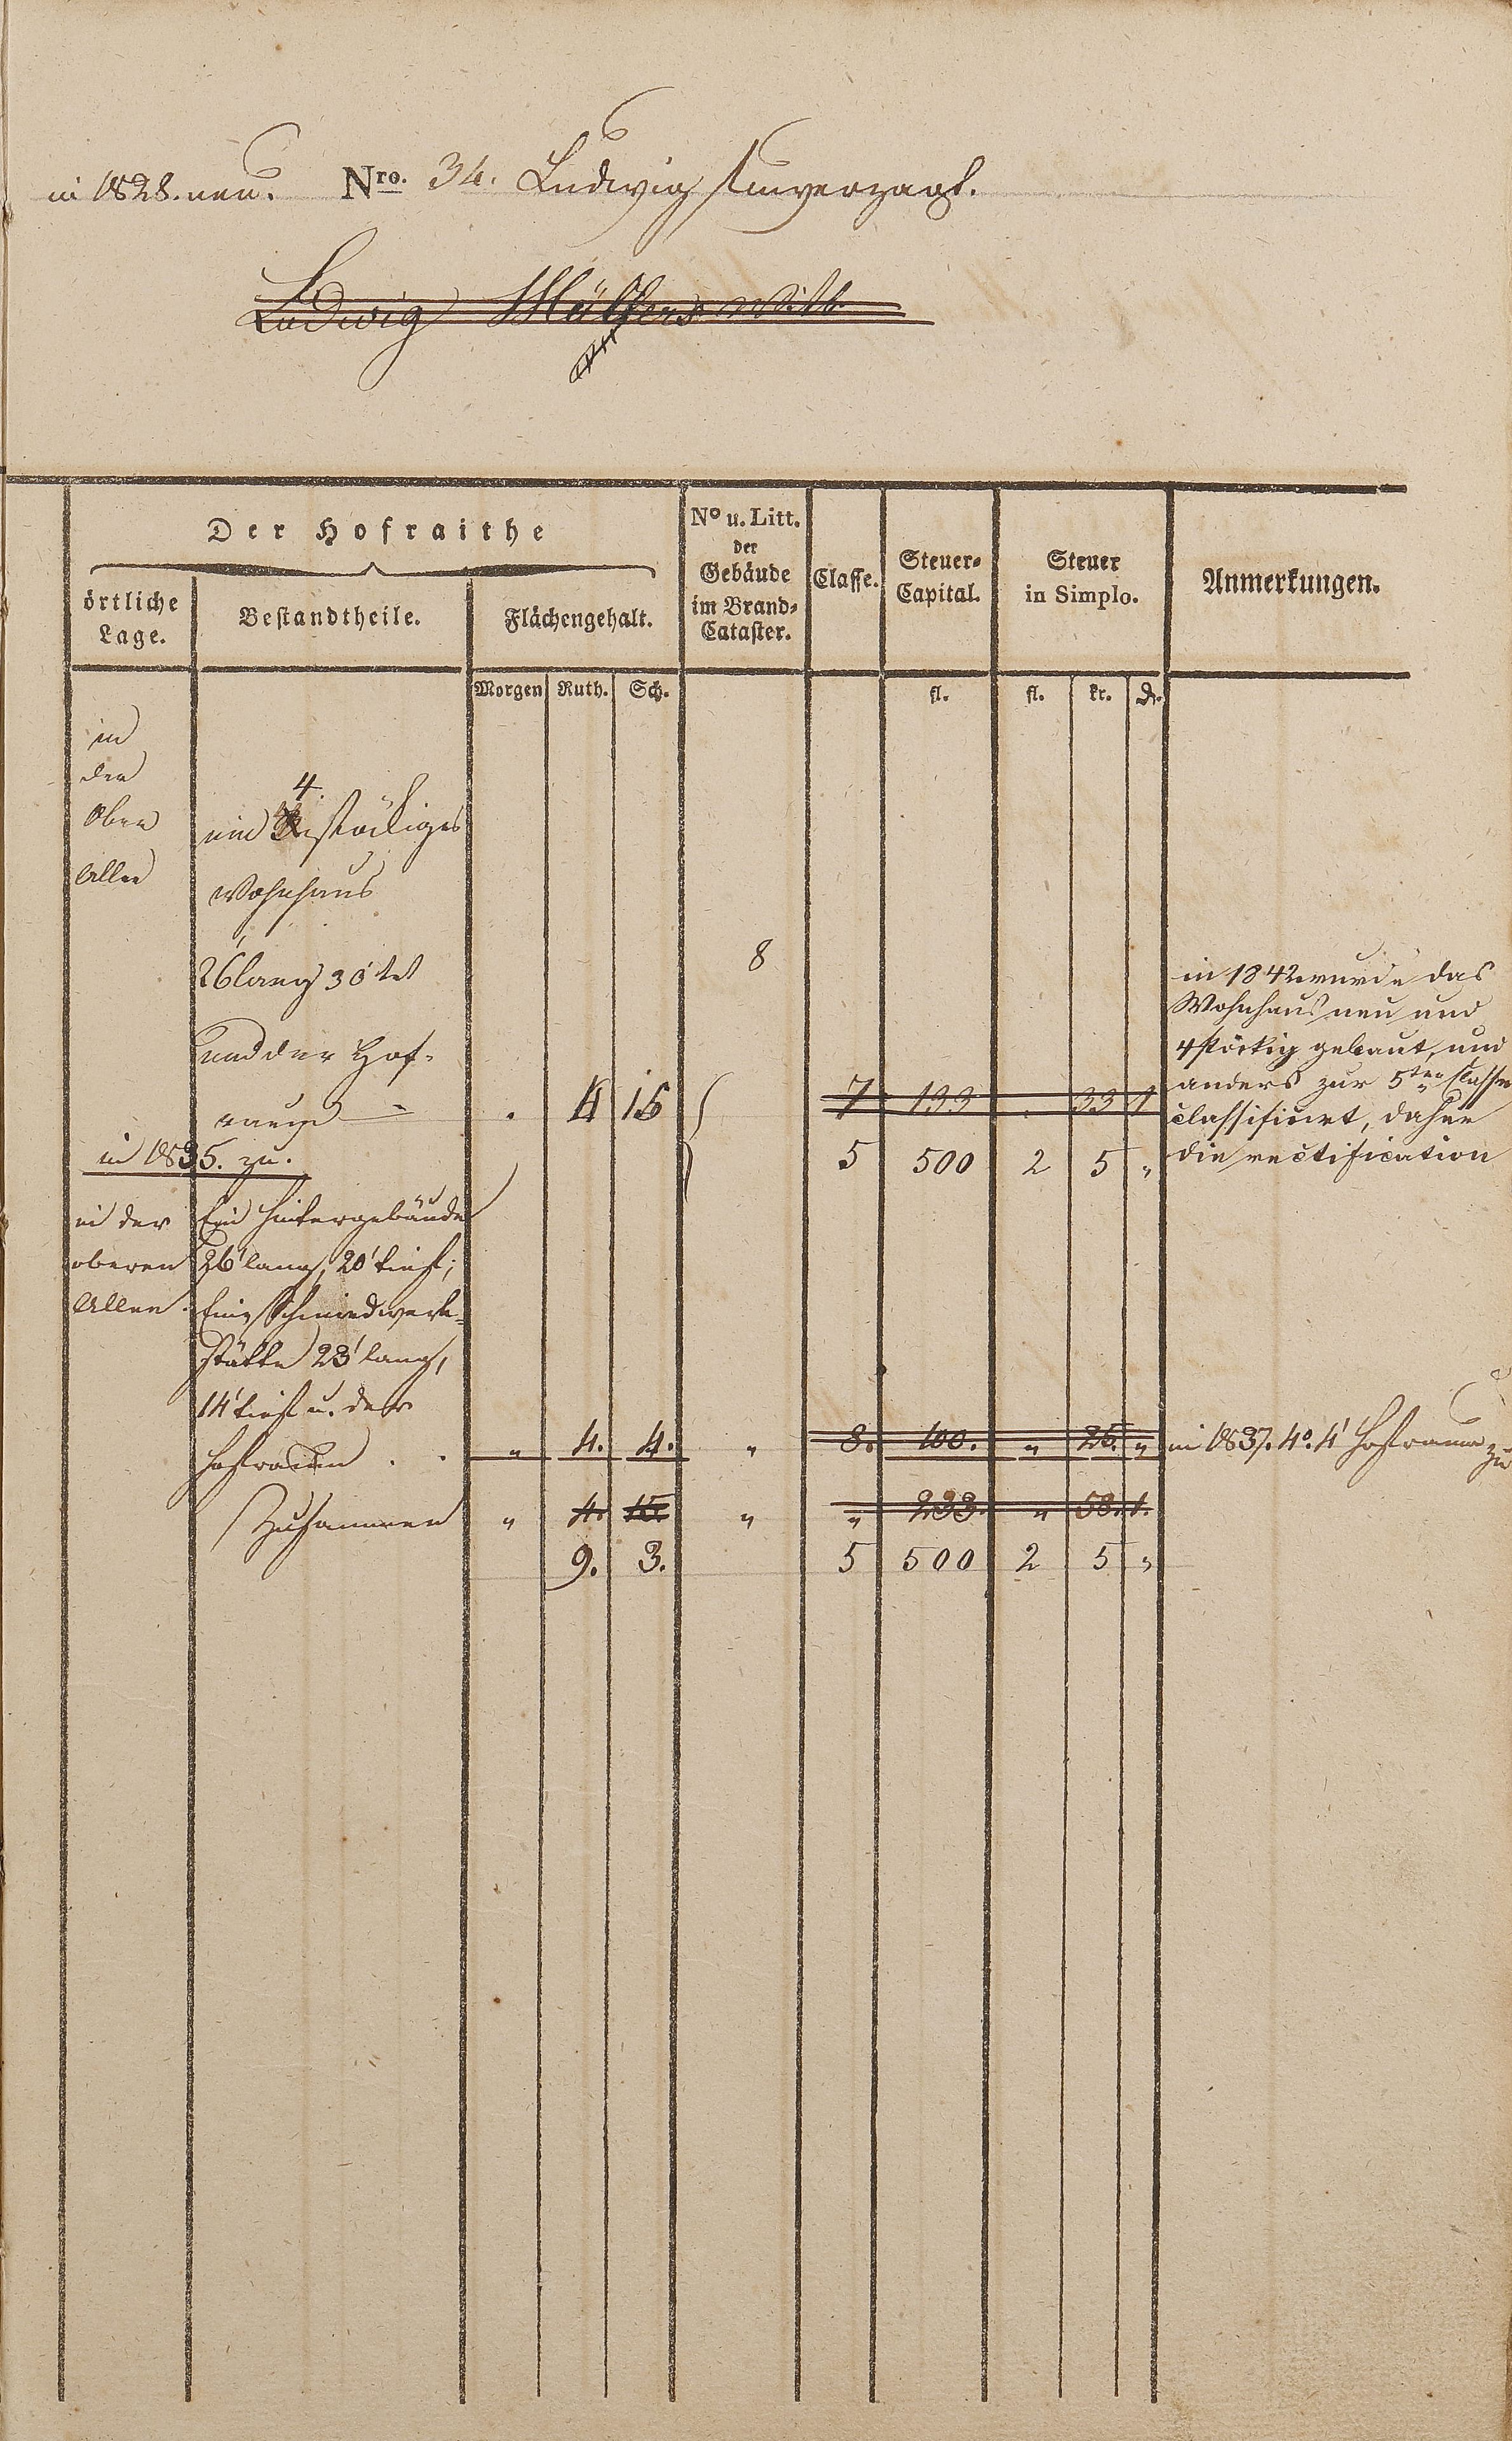 in 1828. neu. Nro. 34. Ludwig Unverzagt.
Ludwig Müllers Witb
Der Hofraithe
örtliche Lage.
Bestandtheile.
Flächengehalt.
No u. Litt. der Gebäude im Brand-Cataster.
Classe.
Steuer-Capital.
Steuer in Simplo.
Anmerkungen.
Morgen Ruth. Sch. fl. fl. kr. d.
in
der
Oben ein 4. stöckiges
Allee Wohnhaus
26' lang 30' tief 8
und der Hof-
raum . 4 15 7 133 . 33 1
5 500 2 5 "
in 1842 wurde das
Wohnhaus neu und
4 stöckig gebaut, und
anders zur 5ten Classe
classificirt, daher
die rectification
in 1835. zu.
in der Ein Hintergebäude
oberen 26' lang, 20' tief;
Allee. Eine Schmiedwerk-
stätte 23' lang,
14' tief u. der
Hofraum . . " 4. 4. " 8. 100. " 25. " in 1837. 4° 4' Hofraum zu
Zusammen " 4. 15. " " 233. " 58. 1.
9. 3. 5 500 2 5 "